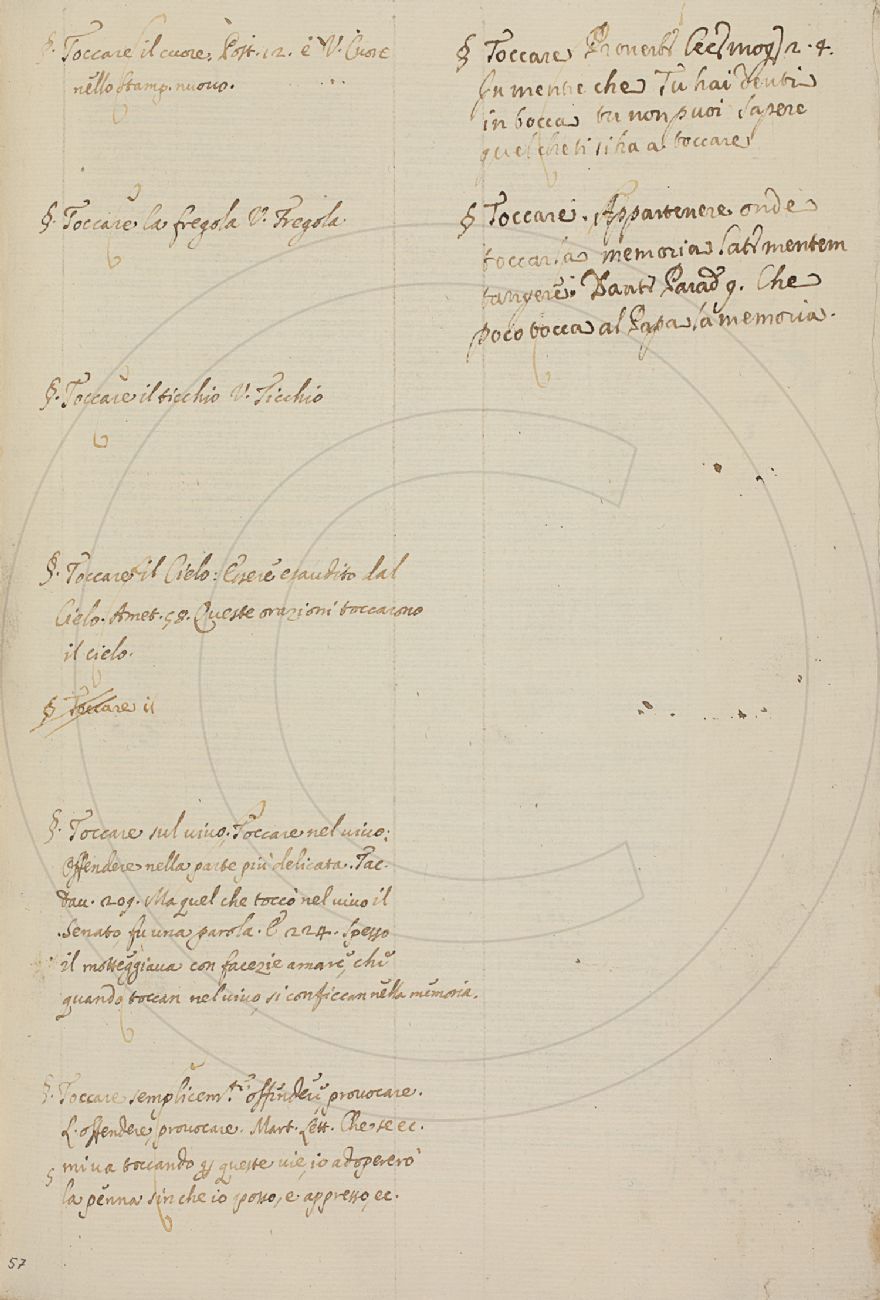 §. Toccare il cuore. Post. 12. è V. Cuore
nello Stamp. nuovo.
§. Toccare la fregola V. Fregola.
§. Toccare il ticchio V. Ticchio
§. Toccare il Cielo: Essere esaudito dal
Cielo. Amet. 58. Queste orazioni toccarono
il cielo.
§ Toccare il
§. Toccare sul vivo, Toccare nel vivo:
Offendere nella parte più delicata. Tac.
Dav. 209. Ma quel che toccò nel vivo il
Senato, fu una parola. E 224. Spesso
il motteggiava con facezie amare, che
quando toccan nel vivo, si conficcan nella memoria.
§. Toccare semplicem.te offendere, provocare.
L. offendere, provocare. Mart. Lett. Che se ec.
mi va toccando queste vie, io adopererò
la penna sin che io posso, e appresso, ec.
57
§ Toccare Proverb. 2. 4.
In mentre che Tu hai denti
in bocca tu non puoi sapere
quel che ti si ha a toccare
§ Toccare. Appartenere onde
toccar la memoria Lat. mentem
tangere. Dant. Parad. 9. Che
poco tocca al Papa la memoria.